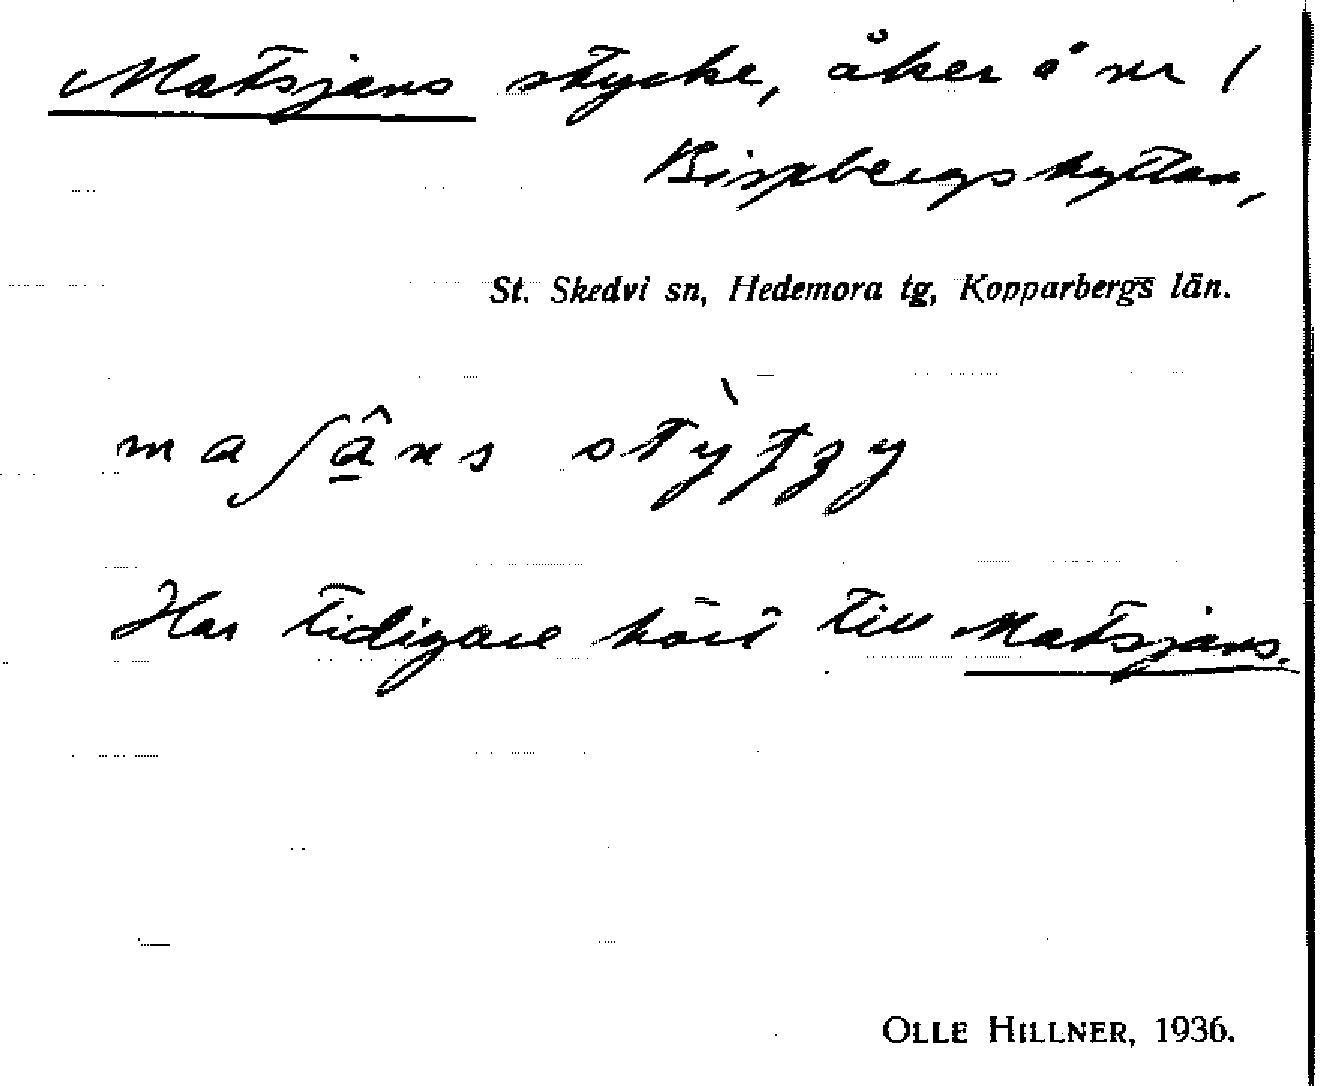 Matsjans stycke, åker å nr 1
Bispbergshyttan,
St. Skedvi sn, Hedemora tg, Kopparbergs län.
maʃâ̱ns
Har tidigare hört till Matsjans.
OLLE HILLNER, 1936.